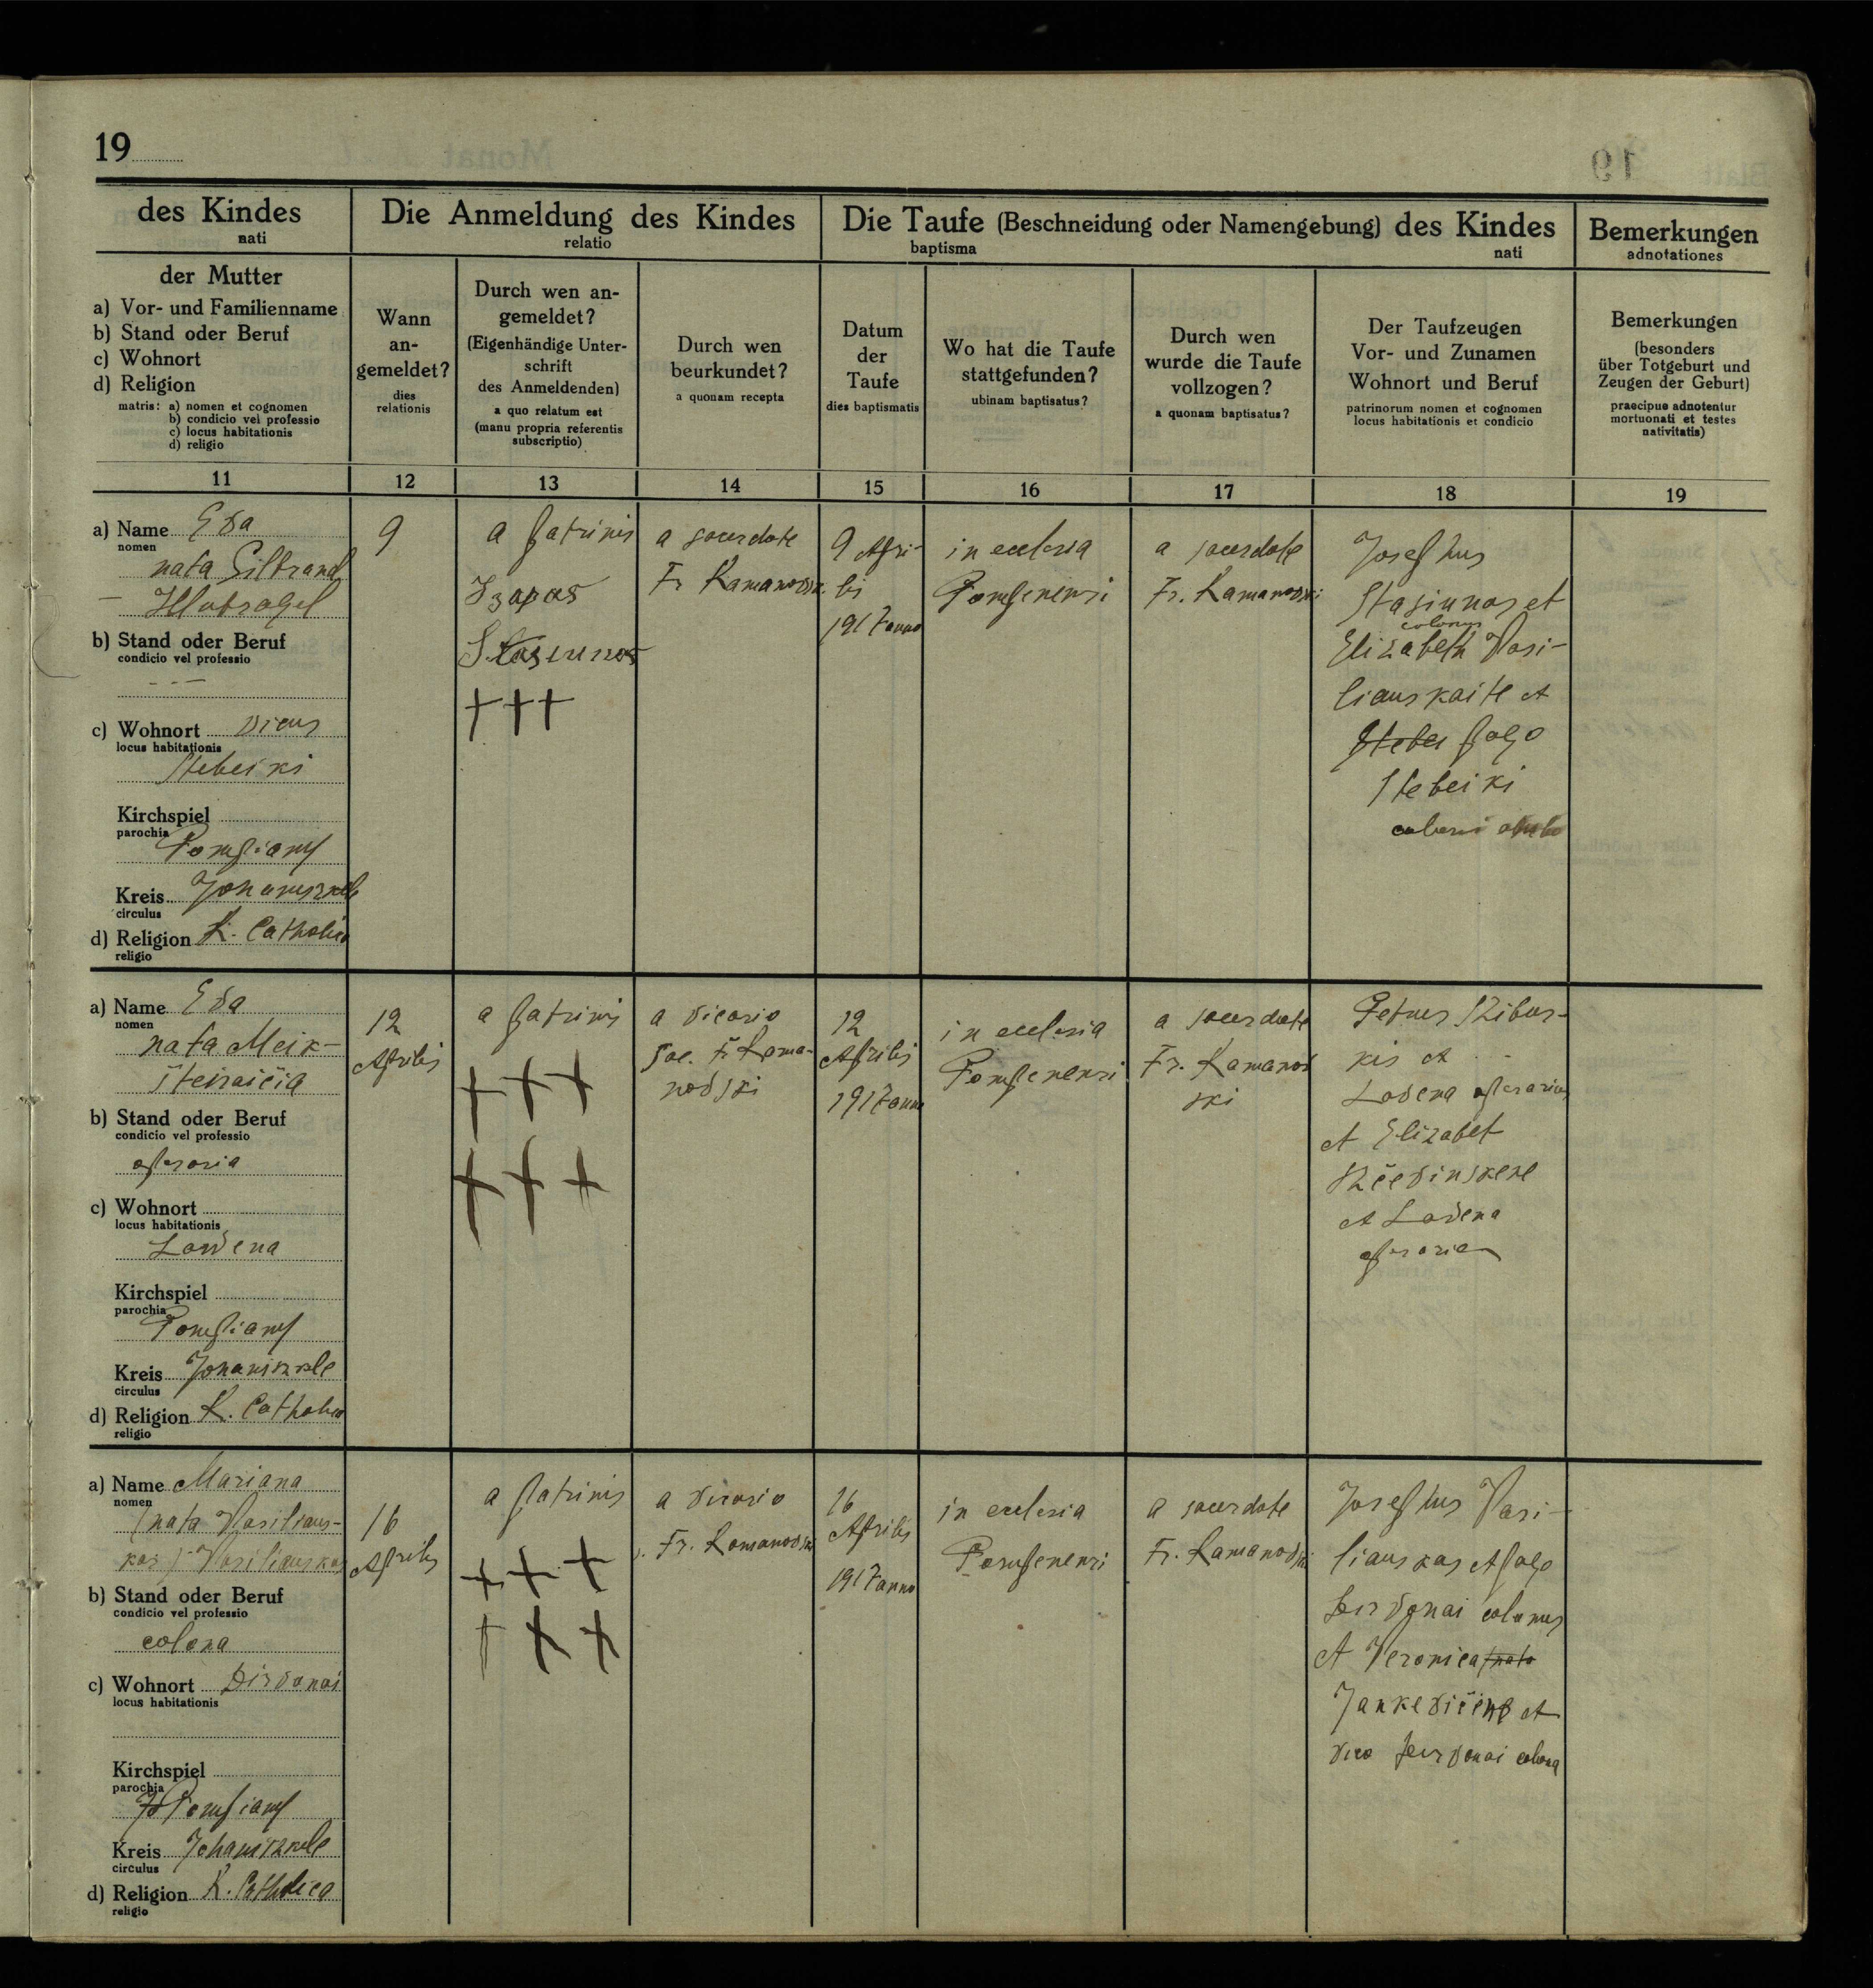 19
des Kindes
nati
Die Anmeldung des Kindes
relatio
Die Taufe (Beschneidung oder Namengebung) des Kindes
baptisma nati
Bemerkungen
adnotationes
der Mutter
a) Vor- und Familienname
b) Stand oder Beruf
c) Wohnort
d) Religion
matris: a) nomen et cognomen
b) condicio vel professio
c) locus habitationis
d) religio
Wann
an-
gemeldet?
dies
relationis
Durch wen an-
gemeldet?
(Eigenhändige Unter-
schrift
des Anmeldenden)
a quo relatum est
(manu propria referentis
subscriptio)
Durch wen
beurkundet?
a quonam recepta
Datum
der
Taufe
dies baptismatis
Wo hat die Taufe
stattgefunden?
ubinam baptisatus?
Durch wen
wurde die Taufe
vollzogen?
a quonam baptisatus?
Der Taufzeugen
Vor- und Zunamen
Wohnort und Beruf
patrinorum nomen et cognomen
locus habitationis et condicio
Bemerkungen
(besonders
über Totgeburt und
Zeugen der Geburt)
praecipue adnotentur
mortuonati et testes
nativitatis)
11 12 13 14 15 16 17 18 19
a) Name Eva
nomen
nata
b) Stand oder Beruf
condicio vel professio
c) Wohnort vicus
locus habitationis
Stebeiki
Kirchspiel
parochia
Pompiany
Kreis Johaniszkele
circulus
d) Religion R. Catholica
religio
9
a patrinis
Izapas
Stasiunas
+++
a sacerdote
Fr Ramanowski
9 Apri-
lis
1917 anno
in ecclesia
Pompenensi
a sacerdote
Fr. Ramanowski
Josephus
Stasiunas et
colonus
Elizabeth Vasi-
liauskaite et
Stebei pago
Stebeiki
a) Name Eva
nomen
nata Meik-
b) Stand oder Beruf
condicio vel professio
operaria
c) Wohnort
locus habitationis
Lavena
Kirchspiel
parochia
Pompiany
Kreis Johaniszkele
circulus
d) Religion R. Catholica
religio
12
Aprilis
a patrinis
+++
+++
a vicario
Sac. Fr Rama-
novski
12
Aprilis
1917 anno
in ecclesia
Pompenensi
a sacerdote
Fr. Ramanov
ski
Petrus Skibar-
kis et
Lavena operarius
et Elizabet
et Lavena
operaria
a) Name Mariana
nomen
(nata Vasiliaus-
kas) Vasiliauskas
b) Stand oder Beruf
condicio vel professio
colona
c) Wohnort Dirvonai
locus habitationis
Kirchspiel
parochia
Pompiany
Kreis Johaniszkele
circulus
d) Religion R. Catholica
religio
16
Aprilis
a patrinis
+++
+++
a vicario
Fr. Ramanovski
16
Aprilis
1917 anno
in ecclesia
Pompenensi
a sacerdote
Fr. Ramanovski
Josephus Vasi-
liauskas et pago
Dirvonai colonus
et Veronica
Jankevičiene et
vico Dirvonai colona